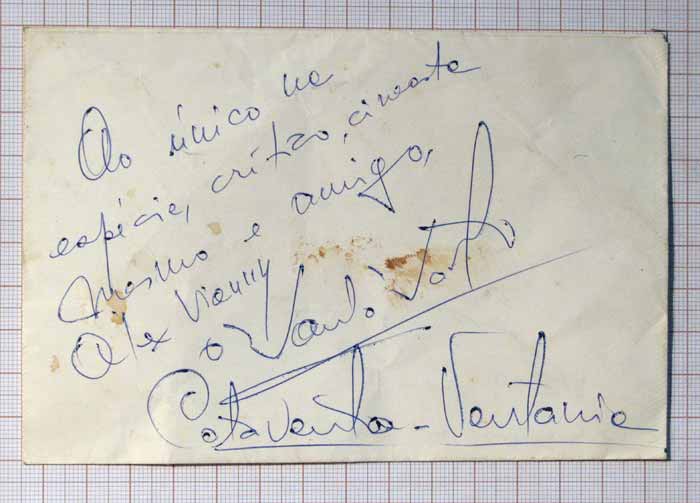 Ao único na
espécie, crítico, cineasta
mesmo e amigo,
Alex Vianny
o
Catavento - Ventania